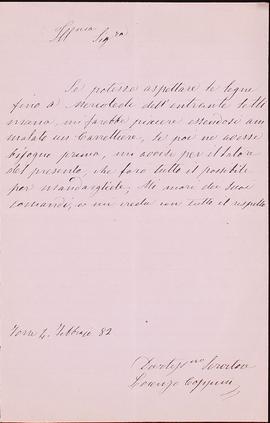 Ill.ma Sig.ra
Se potesse aspettare le legne
fino a Mercolede dell'entrante setti
mana, mi farebbe piacere essendosi am
malato un Carrettiere, se poi ne avesse
bisogno prima, un avviso per il lator
del presente, che farò tutto il possibile
per mandargliele, Mi onori dei suoi
comandi, e mi creda con tutto il rispetto
4 Febbraio 82
Devotiss.mo Servitore
Lorenzo Coppini